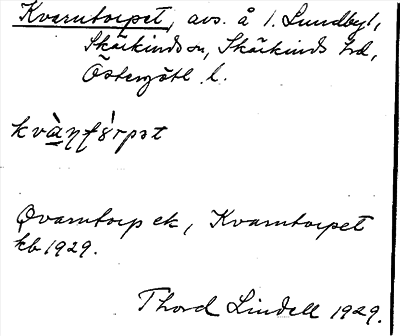 Kvarntorpet, avs. å 1. Lundby 1,
Skärkinds sn, Skärkinds hd,
Östergötl. l.
Qvarntorp ek, Kvarntorpet
kb 1929.
Thord Lindell 1929.